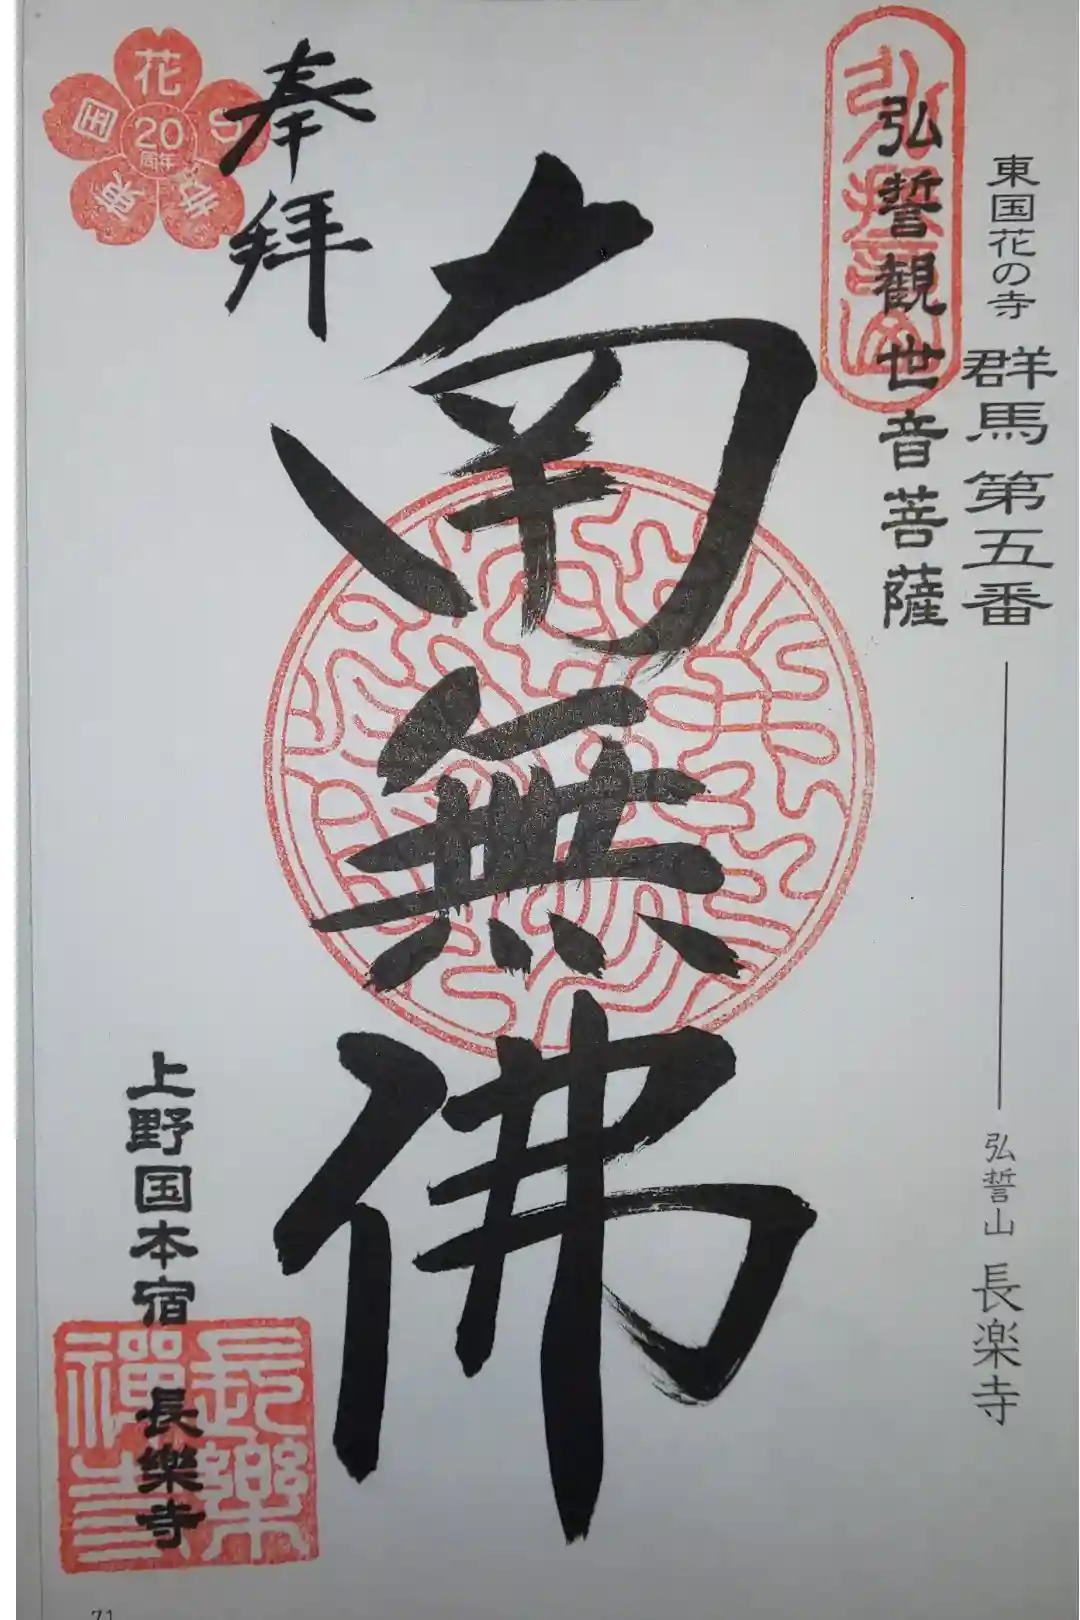 東国花の寺 群馬第五番
弘誓山 長楽寺
弘誓観世音菩薩
弘誓山
南無佛
奉拝
東国花の寺
20
周年
上野国本宿 長樂寺
長樂禅寺
71